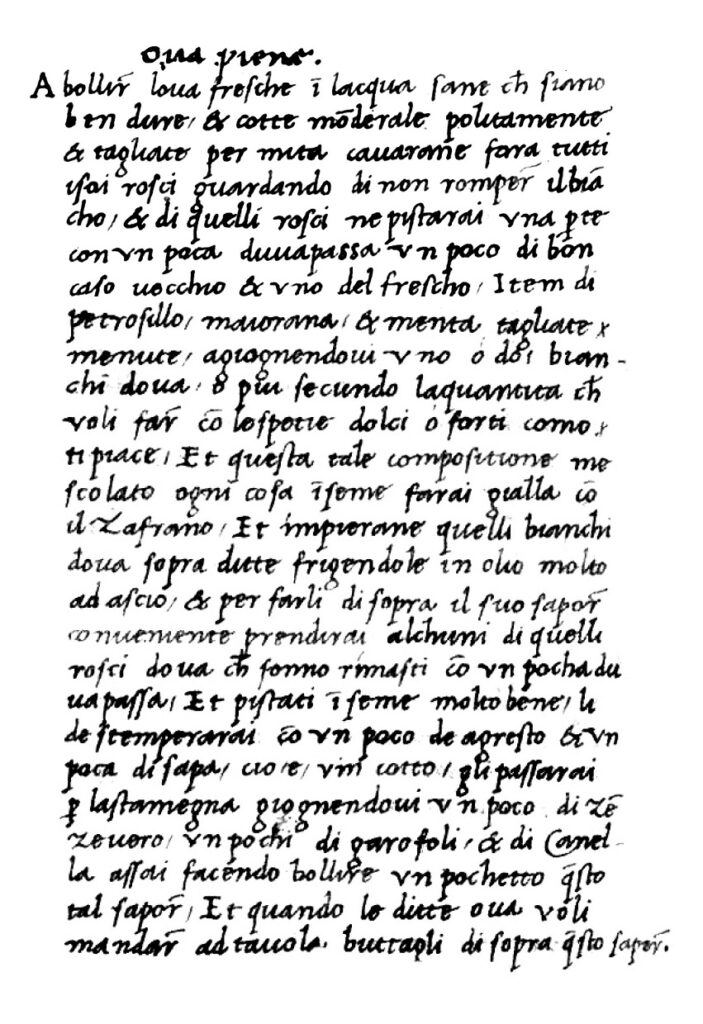 Oua piene.
A bollir̄ loua fresche ī lacqua sane ch̄ siano
ben dure, & cotte mōderale politamente
& tagliate per mita cauarane fora tutti
isoi rosci guardando di non romper̄ il biā
cho, & di quelli rosci ne pistarai vna p̄te
con vn poca duuapassa vn poco di bon
caso uecchio & vno del frescho, Item di
petrosillo, maiorana, & menta tagliate
menute, agiognendoui vno o doi bian-
chi doua, o piu secundo laquantita ch̄
voli far̄ cō lespetie dolci o forti como
ti piace, Et questa tale compositione me
scolato ogni cosa īseme farai gialla cō
il Zafrano, Et impierane quelli bianchi
doua sopra ditte frigendole in olio molto
ad ascio, & per farli di sopra il suo sapor̄
conueniente prendirai alchuni di quelli
rosci doua ch̄ sonno rimasti cō vn pocha du
uapassa, Et pistati īseme molto bene, li
destemperarai cō vn poco de agresto & vn
poca di sapa, cioe, vin cotto, gli passarai
ꝑ lastamegna giognendoui vn poco di zē
zeuero, vn pochi di garofoli, & di Canel-
la assai facendo bollire vn pochetto q̄sto
tal sapor̄, Et quando le ditte oua voli
mandar̄ ad tauola, buttagli di sopra q̄sto sapor̄.